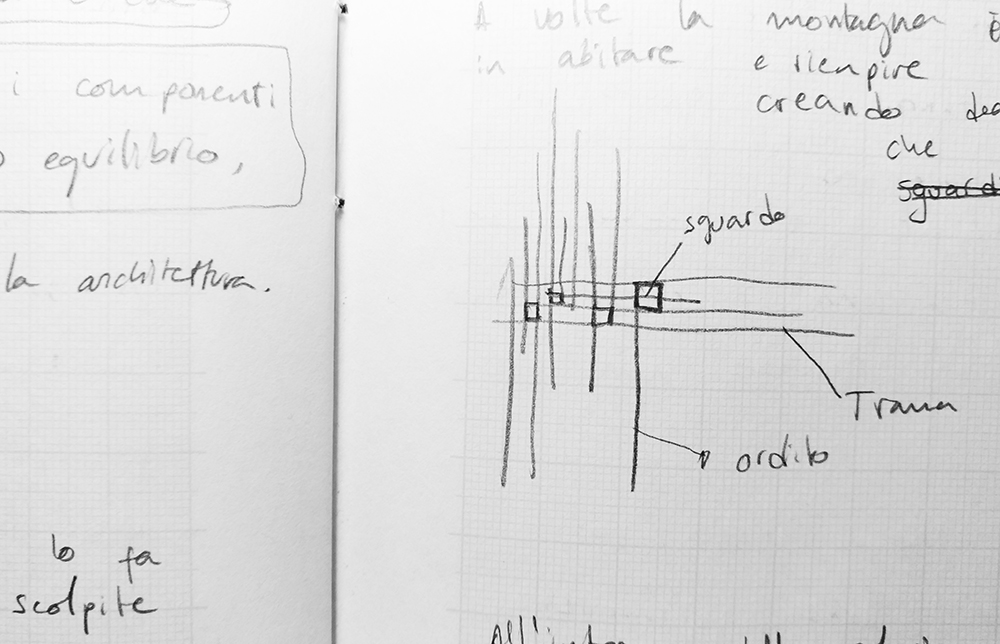 i componenti
equilibrio,
la architettura.
lo fa
scolpite
A volte la montagna è
in abitare e riempire
creando
che
sguardi
sguardo
Trama
ordito
All'